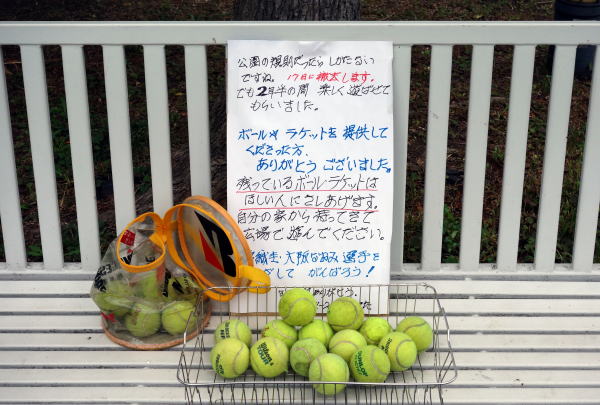 公園の規則だったら しかたない
ですね。17日に撤去します。
でも2年半の間 楽しく遊ばせて
もらいました。
ボールや ラケットを 提供して
くださった方、
ありがとう ございました。
残っているボール・ラケットは
ほしい人にさしあげます。
自分の家から 持ってきて
広場で 遊んでください。
・大阪なおみ 選手を
して がんばろう!
DUNLOP